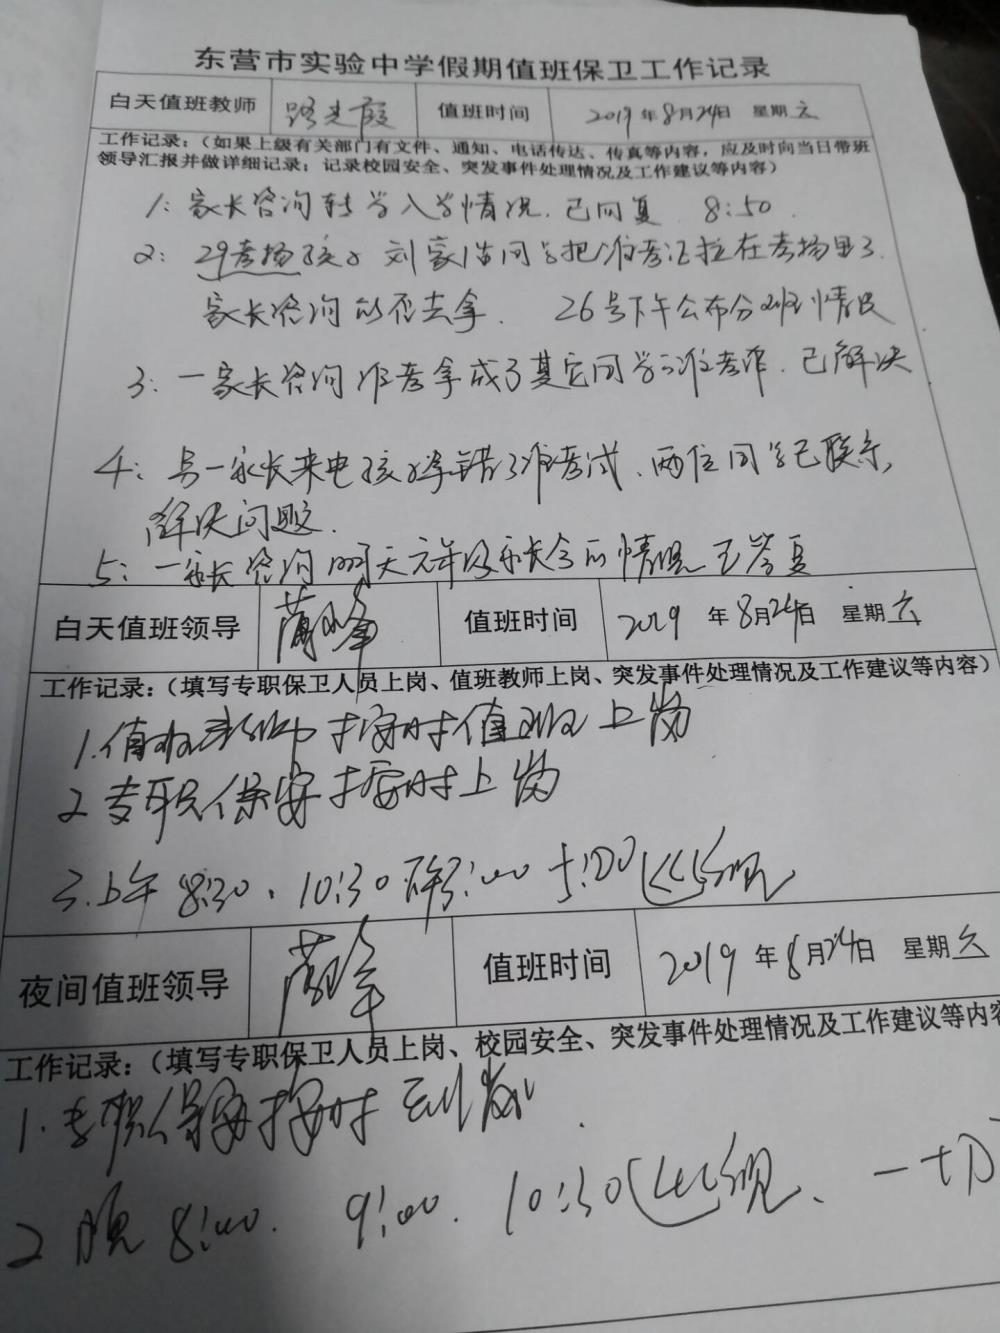 东营市实验中学假期值班保卫工作记录
白天值班教师 值班时间 2019年8月24日 星期六
工作记录：（如果上级有关部门有文件、通知、电话传达、传真等内容，应及时向当日带班
领导汇报并做详细记录；记录校园安全、突发事件处理情况及工作建议等内容）
1：家长咨询转学入学情况．已回复 8:50．
2：29考场孩子 刘家 同学把准考证拉在考场里了．
家长咨询能否去拿． 26号下午公布分班情况
3：一家长咨询准考拿成了其它同学准考 ．已解决
4：另一家长来电孩子拿错了准考试．两位同学已联系，
解决问题．
5：一家长咨询明天 年级家长会的情况 答复
白天值班领导 值班时间 2019 年8月24日 星期六
工作记录：（填写专职保卫人员上岗、值班教师上岗、突发事件处理情况及工作建议等内容）
1.值班教师按时值班上岗
2 专职保安按时上岗
3.上午 8:30． 10:30 3:00 5:00巡视
夜间值班领导 值班时间 2019 年8月24日 星期六
工作记录：（填写专职保卫人员上岗、校园安全、突发事件处理情况及工作建议等内容
1. 专职保安按时到岗．
2 晚 8:00． 9:00． 10:30巡视、一切